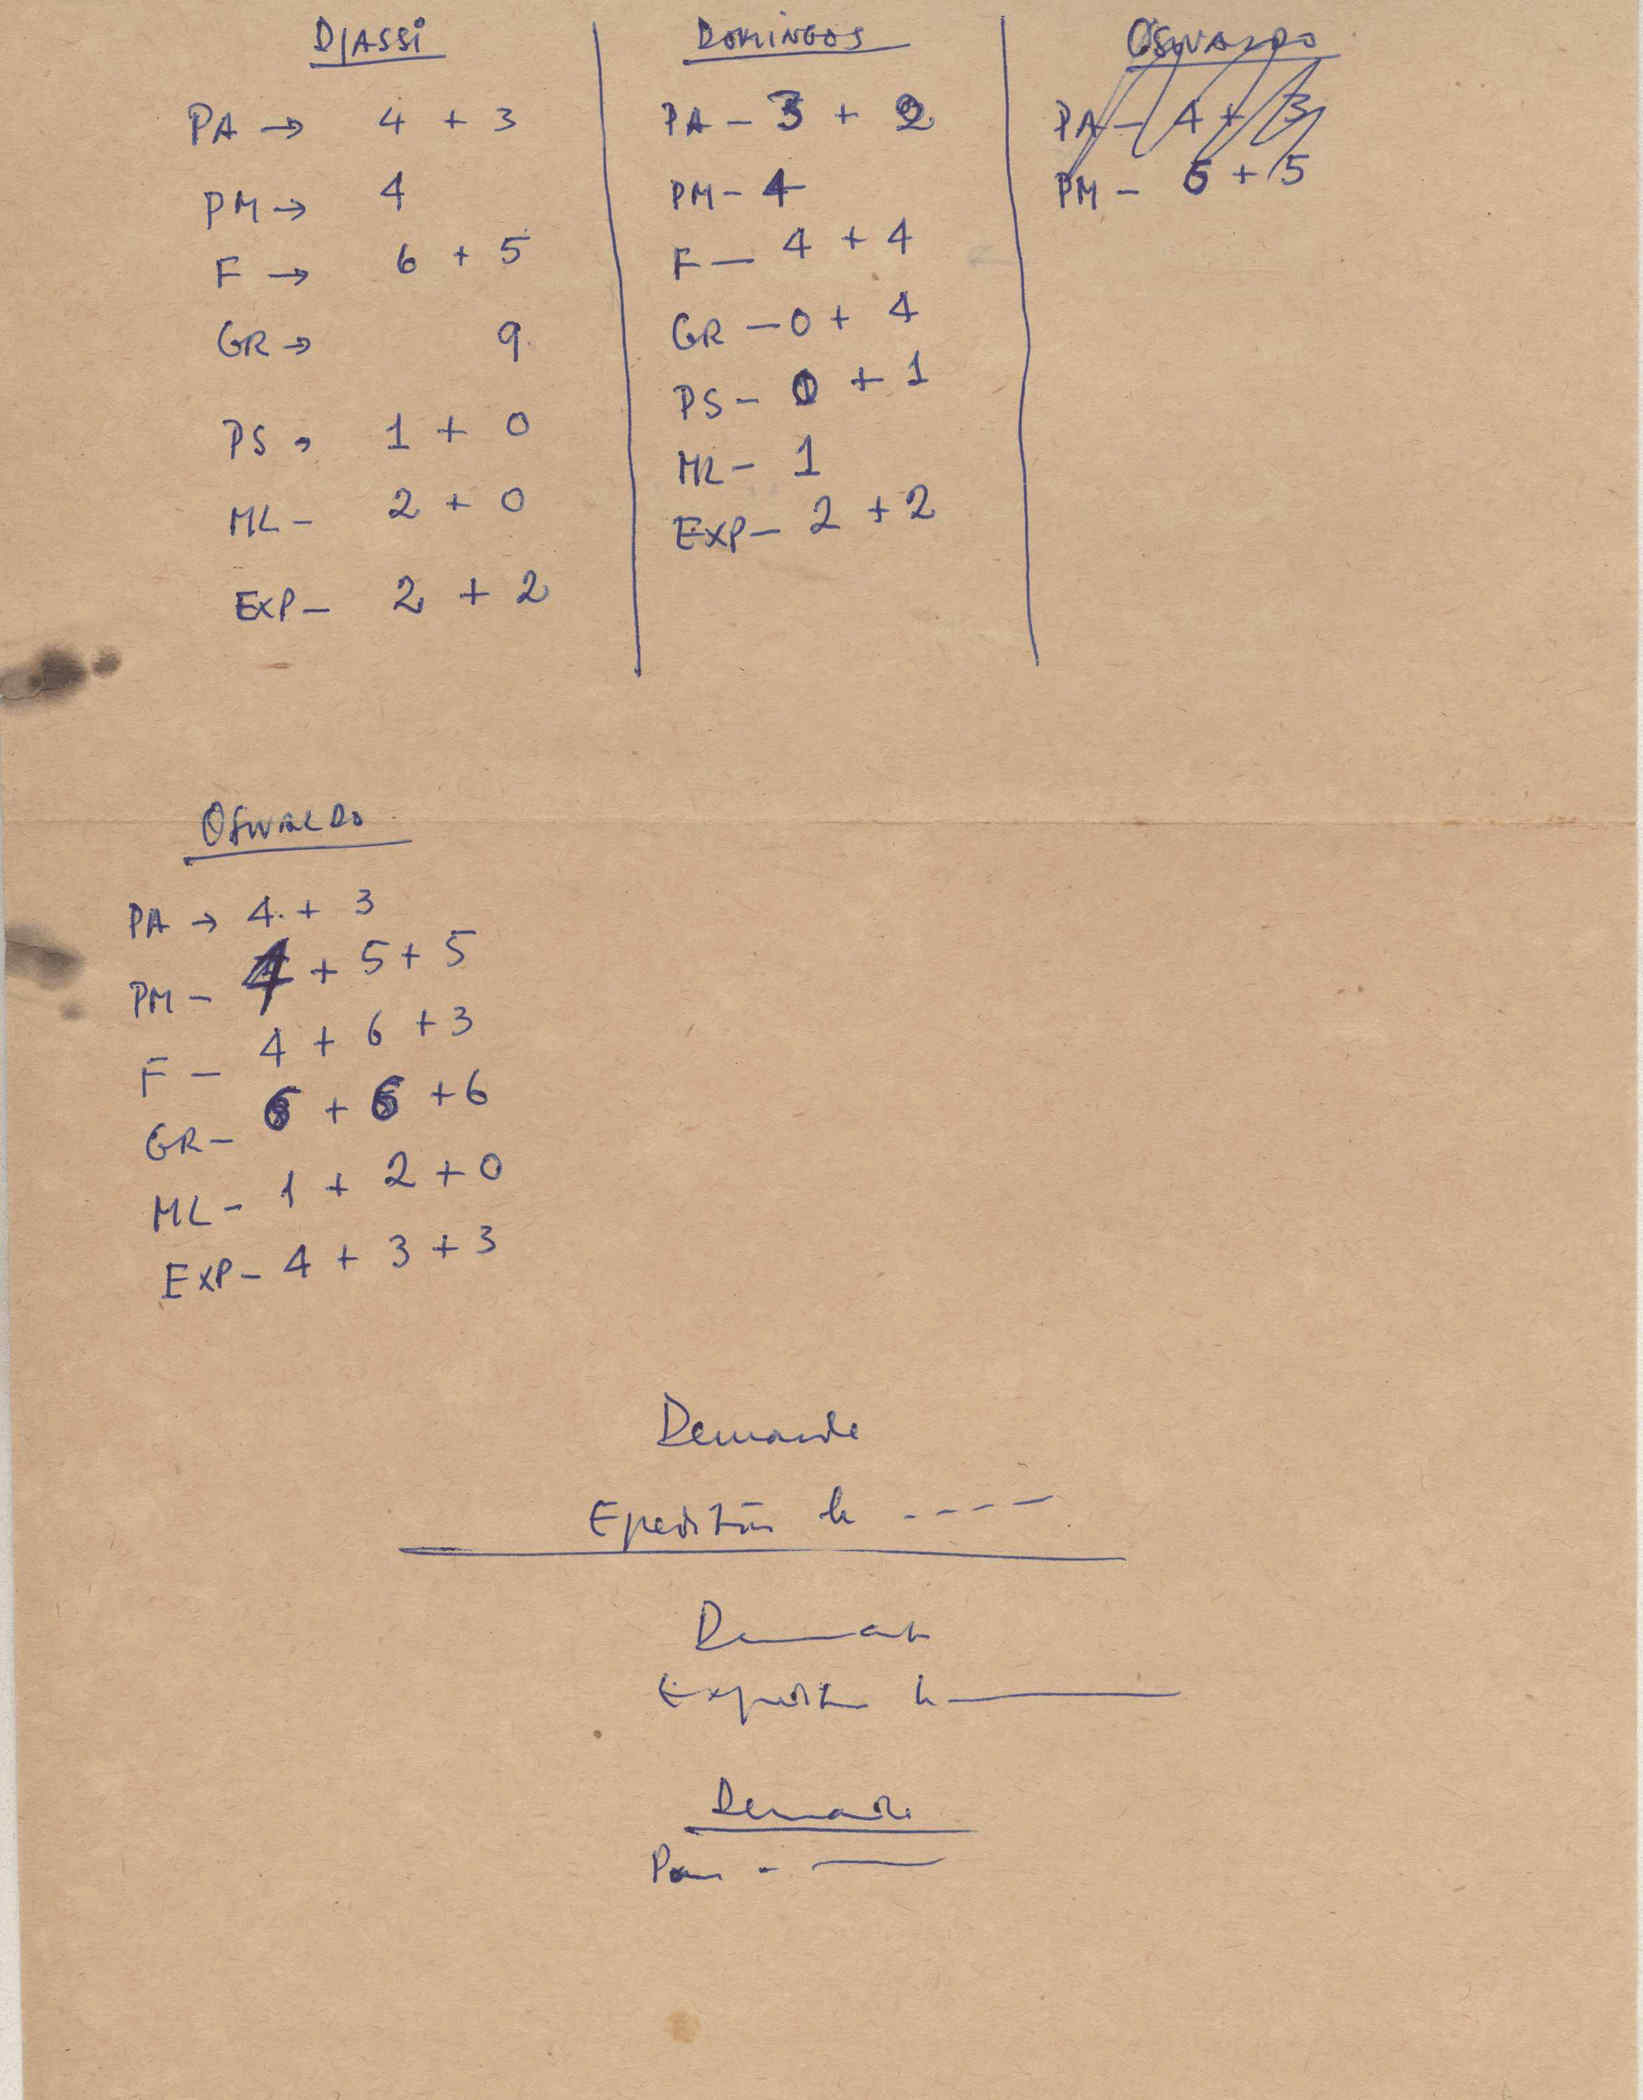 DJASSI
PA → 4 + 3
PM → 4
F → 6 + 5
GR → 9
PS → 1 + 0
ML - 2 + 0
EXP - 2 + 2
DOMINGOS
PA - 3 + 2
PM - 4
F - 4 + 4
GR - 0 + 4
PS - 0 + 1
ML - 1
EXP - 2 + 2
OSWALDO
PA - 4 + 3
PM - 6 + 5
OSWALDO
PA → 4 + 3
PM - 4 + 5 + 5
F - 4 + 6 + 3
GR - 6 + 6 + 6
ML - 1 + 2 + 0
EXP - 4 + 3 + 3
Demande
Epedition le ----
Demande
Expedition le
Demande
Pour -